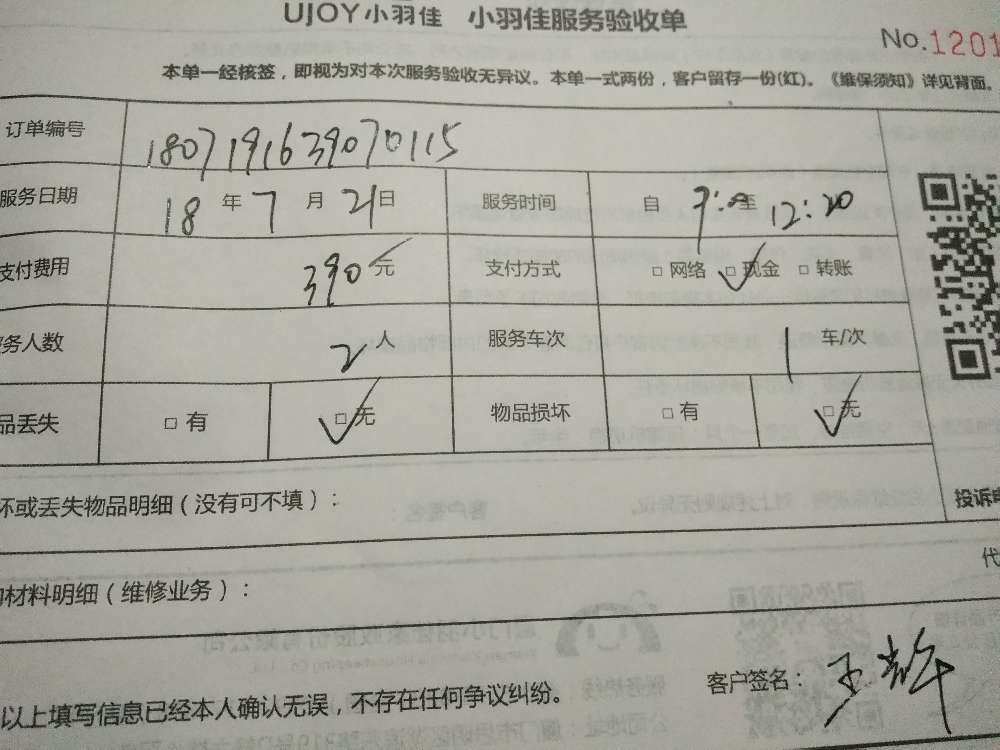 UJOY小羽佳 小羽佳服务验收单
No.1201
本单一经核签，即视为对本次服务验收无异议。本单一式两份，客户留存一份(红)。《维保须知》详见背面。
订单编号 1807191639070115
服务日期 18年7月21日 服务时间 自 9:00至12:20
支付费用 390元 支付方式 □网络 □现金 □转账
务人数 2人 服务车次 1车/次
品丢失 □有 □无 物品损坏 □有 □无
坏或丢失物品明细（没有可不填）：
投诉
材料明细（维修业务）：
代
客户签名：王
以上填写信息已经本人确认无误，不存在任何争议纠纷。